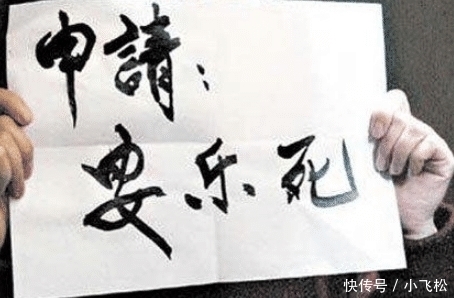 申請：
要乐死
快传号 / 小飞松